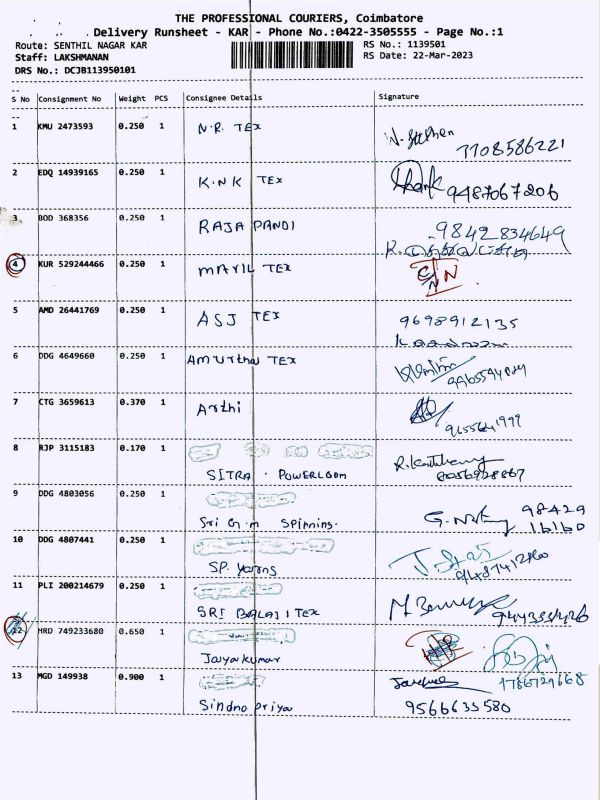 THE PROFESSIONAL COURIERS, Coimbatore
Delivery Runsheet - KAR - Phone No.:0422-3505555 - Page No.:1
Route: SENTHIL NAGAR KAR
RS No.: 1139501
Staff: LAKSHMANAN
RS Date: 22-Mar-2023
DRS No.: DCJB113950101
S No Consignment No Weight PCS Consignee Details Signature
1 KMU 2473593 0.250 1 N.R. TEX
7708586221
2 EDQ 14939165 0.250 1 K.N.K TEX
9487067206
3 BOD 368356 0.250 1 RAJA PANDI
9842834649
4 KUR 529244466 0.250 1 MAYIL TEX C/N N
5 AMD 26441769 0.250 1 ASJ TEX
9698912135
6 DDG 4649660 0.250 1 Amurtha TEX
7 CTG 3659613 0.370 1 Arthi
8 RJP 3115183 0.170 1
SITRA . POWERLOOM
8056928867
9 DDG 4803056 0.250 1
Sri G.M Spinning.
98429
16160
10 DDG 4807441 0.250 1
SP. Yarns
11 PLI 200214679 0.250 1
SRI BALAJI TEX
12 HRD 749233680 0.650 1
Jayakumar
13 MGD 149938 0.900 1
Sindho priya
9566635580